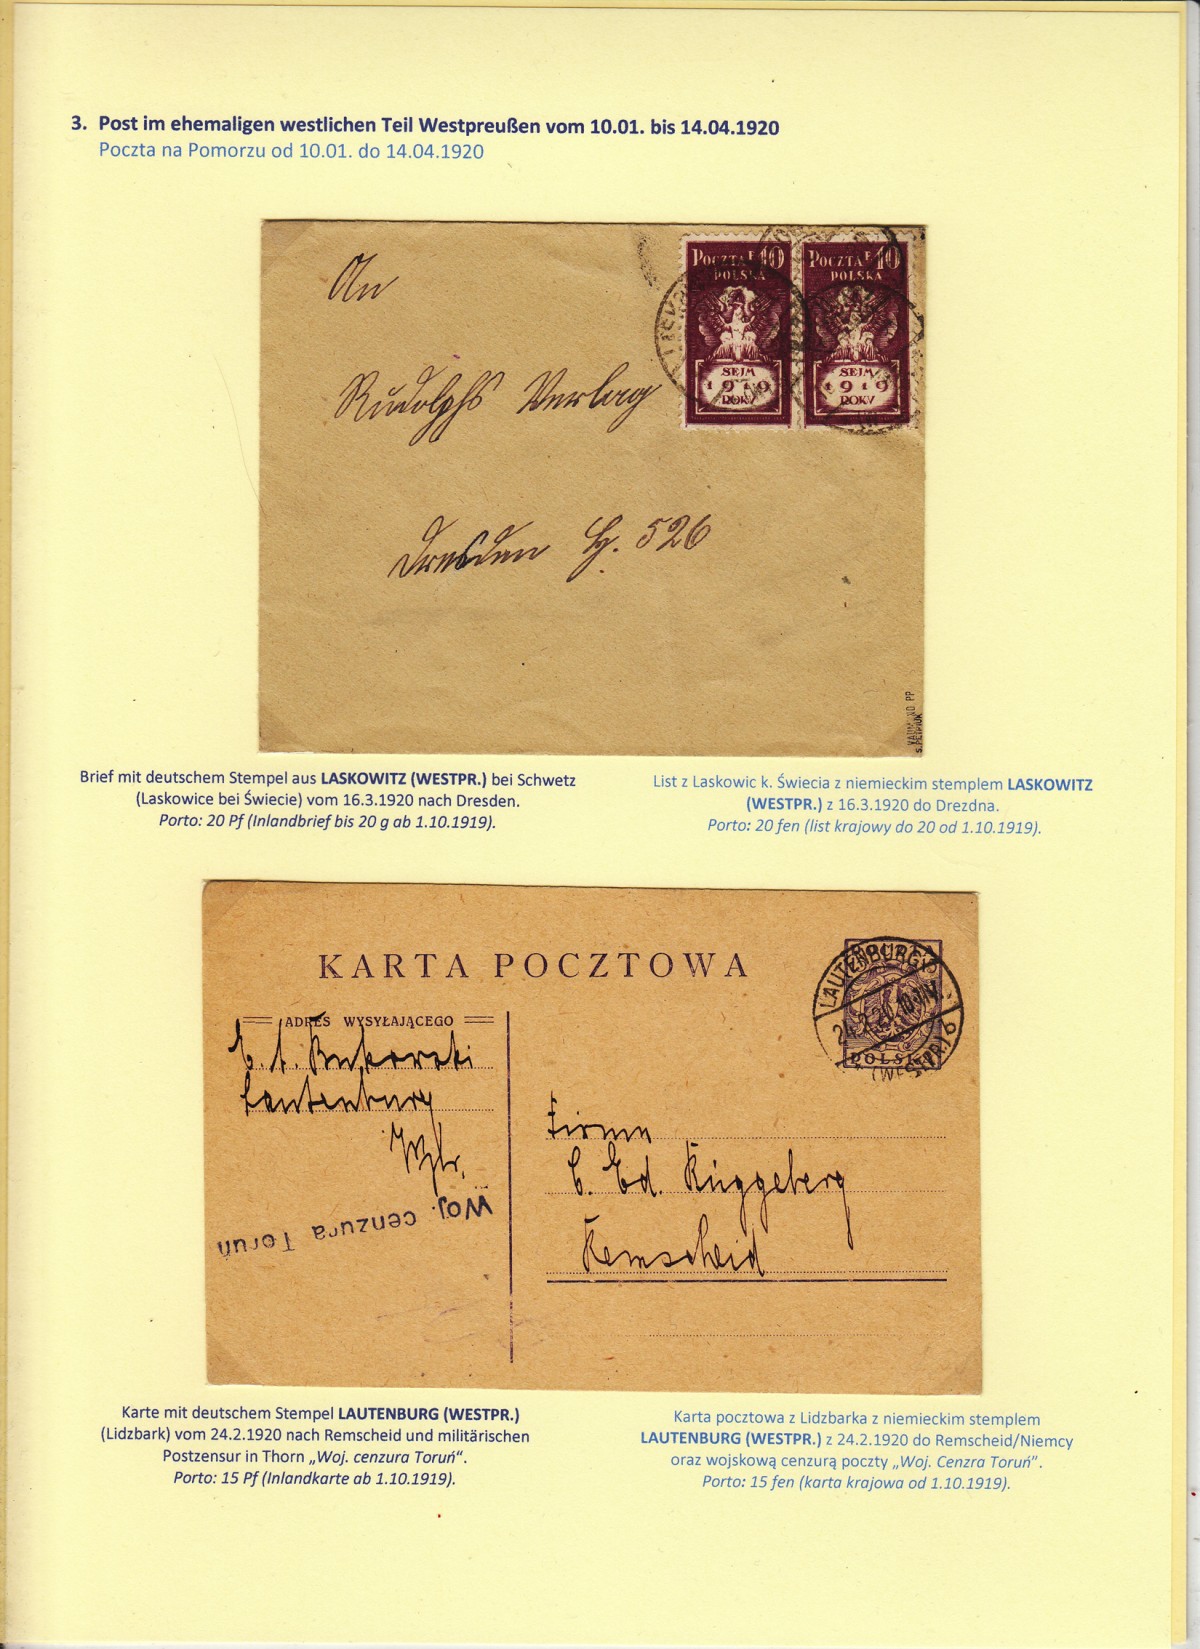 3. Post im ehemaligen westlichen Teil Westpreußen vom 10.01. bis 14.04.1920
Poczta na Pomorzu od 10.01. do 14.04.1920
An
Rudolphs Verlag
Dresden Hg. 526
POCZTA F10
POLSKA
SEJM
1919
ROKU
POCZTA F10
POLSKA
SEJM
1919
ROKU
PP
S. PETRIUK
Brief mit deutschem Stempel aus LASKOWITZ (WESTPR.) bei Schwetz
(Laskowice bei Świecie) vom 16.3.1920 nach Dresden.
Porto: 20 Pf (Inlandbrief bis 20 g ab 1.10.1919).
List z Laskowic k. Świecia z niemieckim stemplem LASKOWITZ
(WESTPR.) z 16.3.1920 do Drezdna.
Porto: 20 fen (list krajowy do 20 od 1.10.1919).
KARTA POCZTOWA
ADRES WYSYŁAJĄCEGO
Lautenburg
Wpr.
Woj. cenzura Toruń
LAUTENBURG
24.2.20.10-11V.
(WESTPR.) b
POLSKA
Firma
C. Ed. Rüggeberg
Remscheid
Karte mit deutschem Stempel LAUTENBURG (WESTPR.)
(Lidzbark) vom 24.2.1920 nach Remscheid und militärischen
Postzensur in Thorn „Woj. cenzura Toruń“.
Porto: 15 Pf (Inlandkarte ab 1.10.1919).
Karta pocztowa z Lidzbarka z niemieckim stemplem
LAUTENBURG (WESTPR.) z 24.2.1920 do Remscheid/Niemcy
oraz wojskową cenzurą poczty „Woj. Cenzra Toruń”.
Porto: 15 fen (karta krajowa od 1.10.1919).